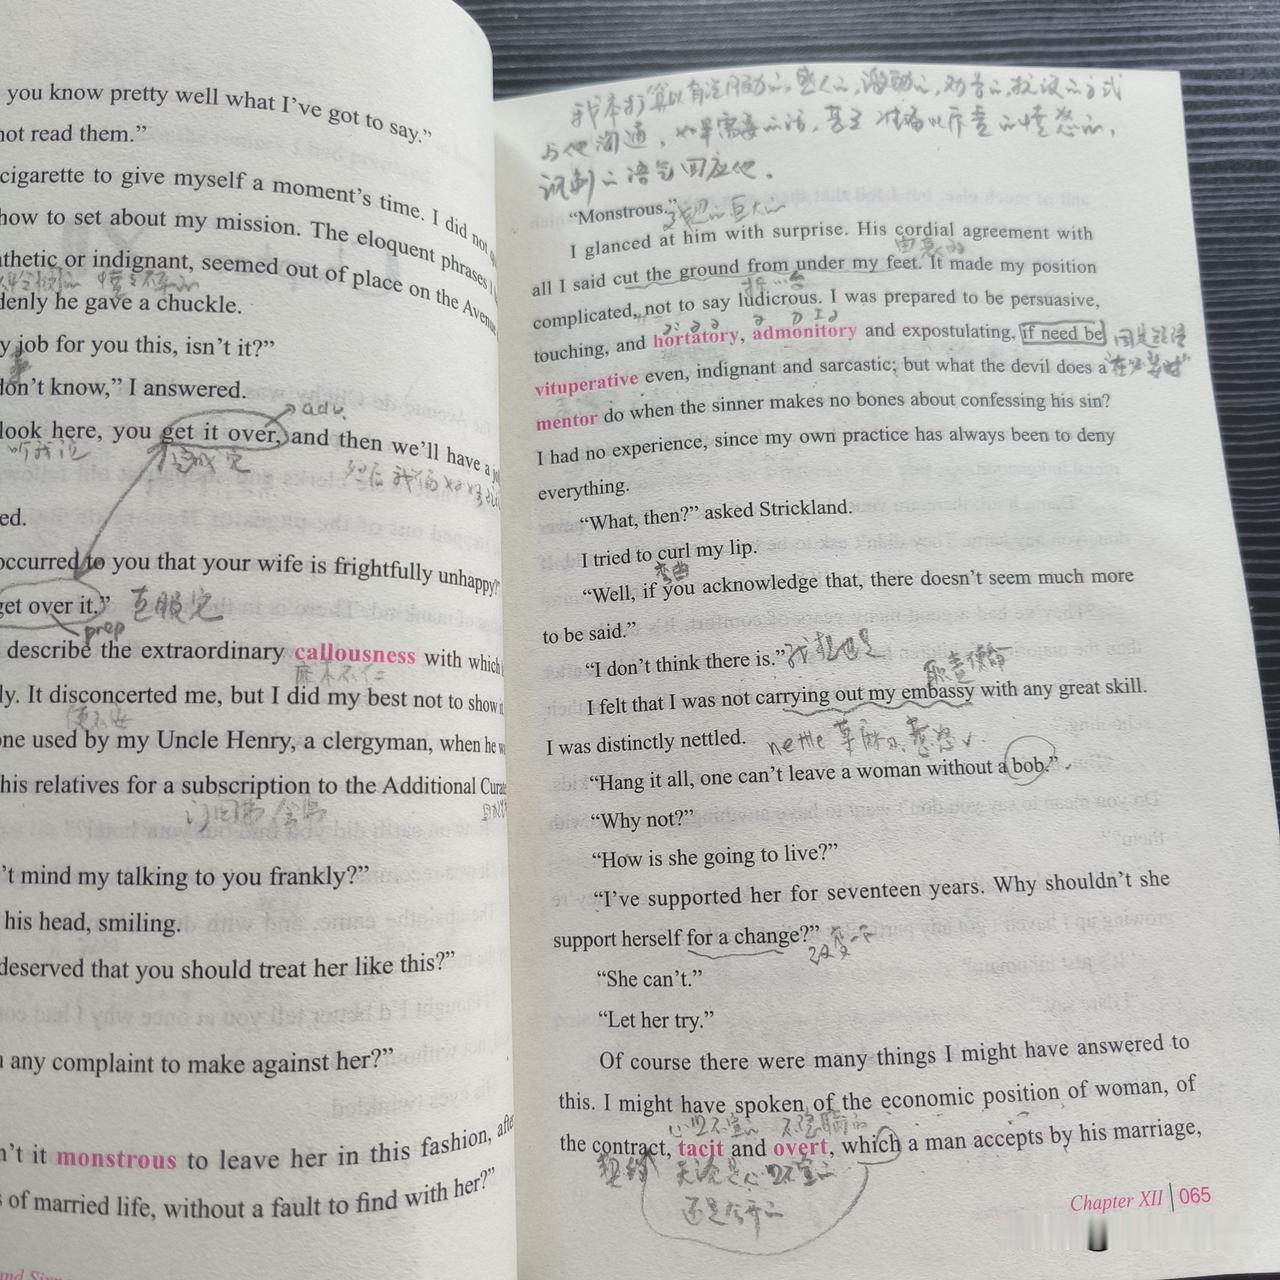 you know pretty well what I've got to say."
not read them."
cigarette to give myself a moment's time. I did not
how to set about my mission. The eloquent phrases I
or indignant, seemed out of place on the
he gave a chuckle.
job for you this, isn't it?"
know," I answered.
adv.
look here, you get it over, and then we'll have a
听我说
搞成完
然后我们好好
occurred to you that your wife is frightfully unhappy?"
get over it." 克服完
prep
describe the extraordinary callousness with which
麻木不仁
It disconcerted me, but I did my best not to show
使不安
used by my Uncle Henry, a clergyman, when he
his relatives for a subscription to the Additional
mind my talking to you frankly?"
his head, smiling.
deserved that you should treat her like this?"
any complaint to make against her?"
it monstrous to leave her in this fashion,
of married life, without a fault to find with her?"
我本打算以有说服力的,感人的,激励的,劝告的,抗议的方式
与他沟通,如果需要的话,甚至准备以斥责的愤怒的,
讽刺的语气回应他。
"Monstrous." 巨大的
I glanced at him with surprise. His cordial agreement with
由衷的
all I said cut the ground from under my feet. It made my position
complicated, not to say ludicrous. I was prepared to be persuasive,
touching, and hortatory, admonitory and expostulating, if need be
vituperative even, indignant and sarcastic; but what the devil does a "在必要时"
mentor do when the sinner makes no bones about confessing his sin?
I had no experience, since my own practice has always been to deny
everything.
"What, then?" asked Strickland.
I tried to curl my lip.
弯曲
"Well, if you acknowledge that, there doesn't seem much more
to be said."
"I don't think there is." 我想也是
职责使命
I felt that I was not carrying out my embassy with any great skill.
I was distinctly nettled. nettle 荨麻 n. 惹怒 v.
"Hang it all, one can't leave a woman without a bob."
"Why not?"
"How is she going to live?"
"I've supported her for seventeen years. Why shouldn't she
support herself for a change?"
"She can't."
"Let her try."
Of course there were many things I might have answered to
this. I might have spoken of the economic position of woman, of
心照不宣的
the contract, tacit and overt, which a man accepts by his marriage,
契约 无论是心照不宣的
还是公开的
Chapter XII | 065